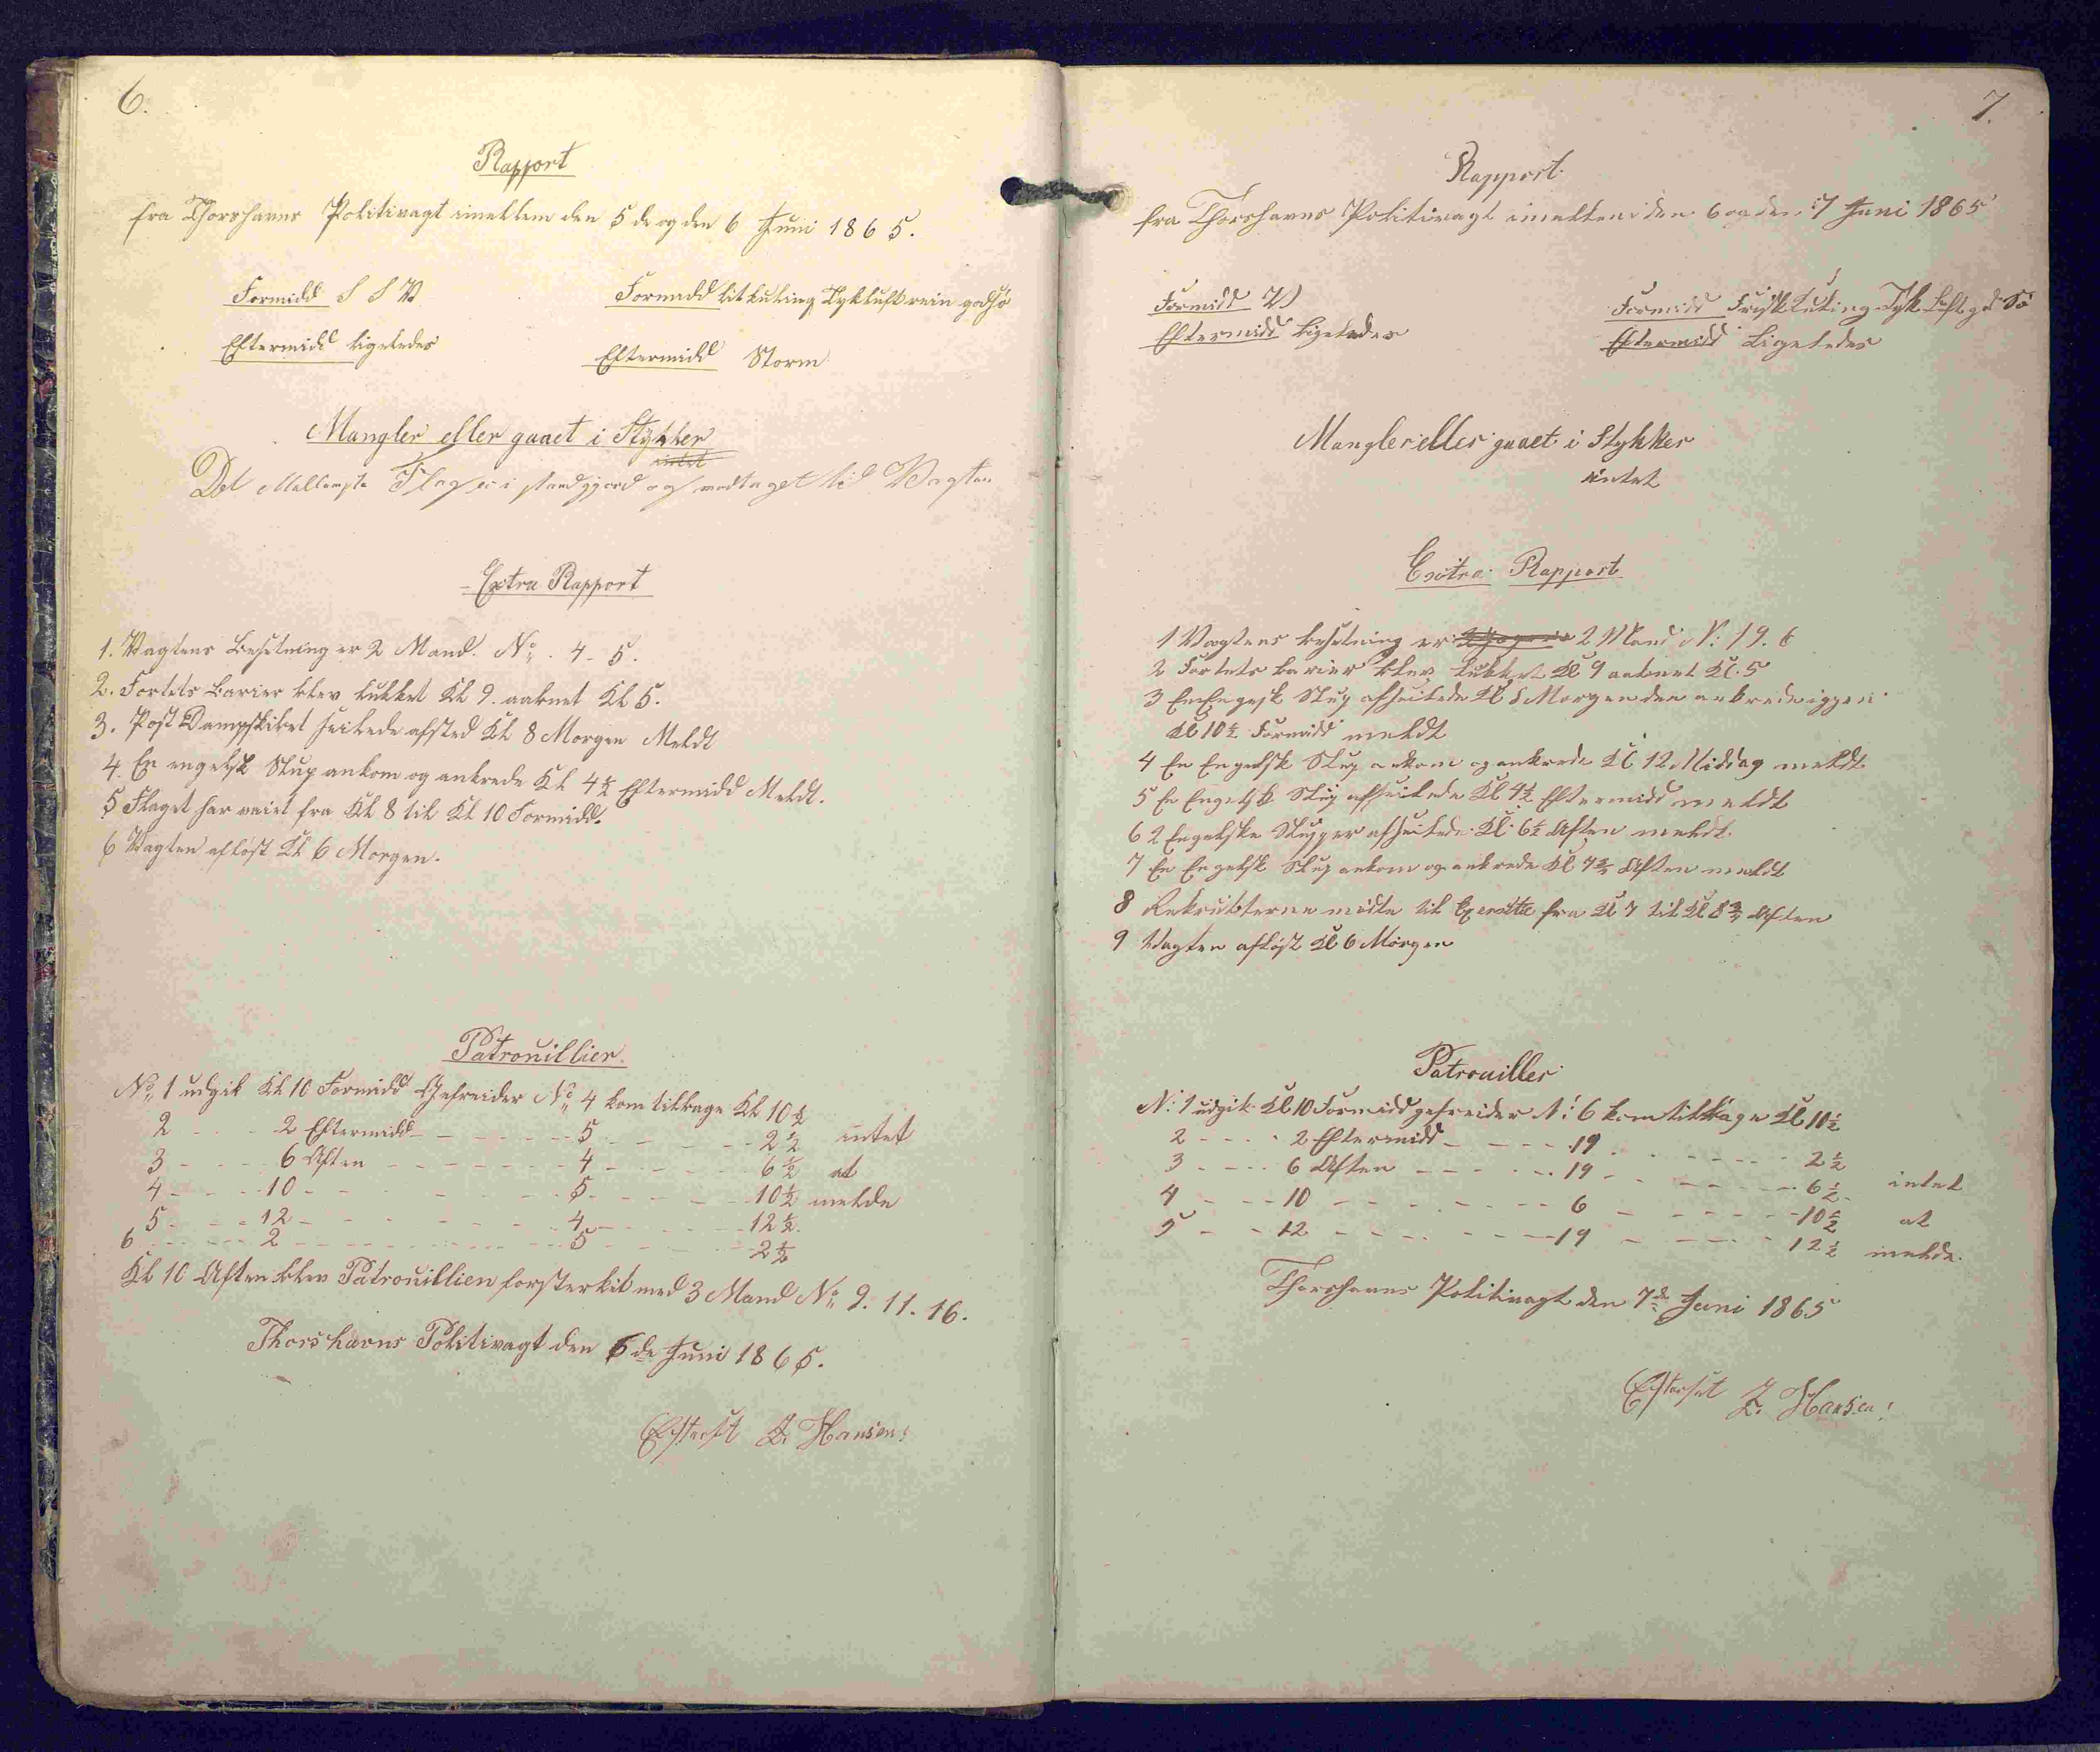 6.
Rapport
fra Thorshavns Politivagt imellem den 5 de og den 6 Juni 1865.
Formidd S S V
Formidd lit kuling Tyk luft rein god sø
Eftermidd ligeledes
Eftermidd Storm
Mangler eller gaaet i Stykker
intet
Det Flag er i standgjord og modtaget til Vagten
Extra Rapport
1. Vagtens Besetning er 2 Mand. No. 4. 5.
2. Fortets Barier blev lukket Kl 9. aabnet Kl 5.
3. Post Dampskibet seilede afsted Kl 8 Morgen Meldt
4. En engelsk Slup ankom og ankrede Kl 4½ Eftermidd Meldt.
5 Flaget har vaiet fra Kl 8 til Kl 10 Formidd.
6 Vagten afløst Kl 6 Morgen.
Patrouillier
No. 1 udgik Kl 10 Formidd Gefreider No. 4 kom tilbage Kl 10½
2 - - - 2 Eftermidd - - - - - - 5 - - - - - - 2½ intet
3 - - - 6 Aften - - - - - - 4 - - - - - - 6½ at
4 - - - 10 - - - - - - 5 - - - - - - 10½ melde
5 - - - 12 - - - - - - 4 - - - - - - 12½
6 - - - 2 - - - - - - 5 - - - - - - 2½
Kl 10 Aften blev Patrouillien forsterket med 3 Mand No. 9. 11. 16.
Thorshavns Politivagt den 6 de Juni 1865.
Hansen
7.
Rapport
fra Thorshavns Politivagt imellem den 6 og den 7 Juni 1865
Formidd V
Formidd Frisk Kuling Tyk Luft gd Sø
Eftermidd ligeledes
Eftermidd Ligeledes
Mangler eller gaaet i Stykker
intet
Exstra Rapport
1 Vagtens besetning er 2 Mand N: 19. 6
2 Fortets barier blev lukket Kl 9 aabnet Kl. 5
3 En Engelsk Slup afseilede Kl 8 Morgen den ankrede iggen
Kl 10½ Formidd meldt
4 En Engelsk Slup ankom og ankrede Kl 12 Middag meldt
5 En Engelsk Slup afseilede Kl 4½ Eftermidd meldt
6 2 Engelske Slupper afseilede Kl. 6½ Aften meldt.
7 En Engelsk Slup ankom og ankrede Kl 7¾ Aften meldt
8 Rekrutterne mödte til Exersitie fra Kl 7 til Kl 8¾ Aften
9 Vagten afløst Kl 6 Morgen
Patrouiller
N: 1 udgik Kl 10 Formidd gefreider N: 6 kom tilbage Kl 11½
2 - - - - 2 Eftermidd - - - - 19 - - - - - - 2½
3 - - - - 6 Aften - - - - - 19 - - - - - - 6½ intet
4 - - - 10 - - - - - - 6 - - - - - - 10½ at
5 - - 12 - - - - - - 19 - - - - - - 12½ melde.
Thorshavns Politivagt den 7de Juni 1865
Hansen